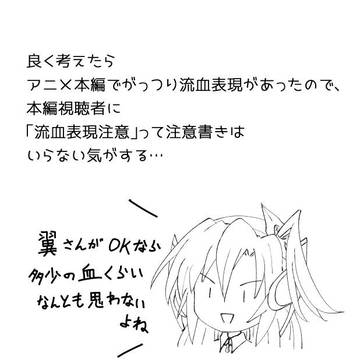 良く考えたら
アニメ本編でがっつり流血表現があったので、
本編視聴者に
「流血表現注意」って注意書きは
いらない気がする…
翼さんがOKなら
多少の血くらい
なんとも思わない
よね